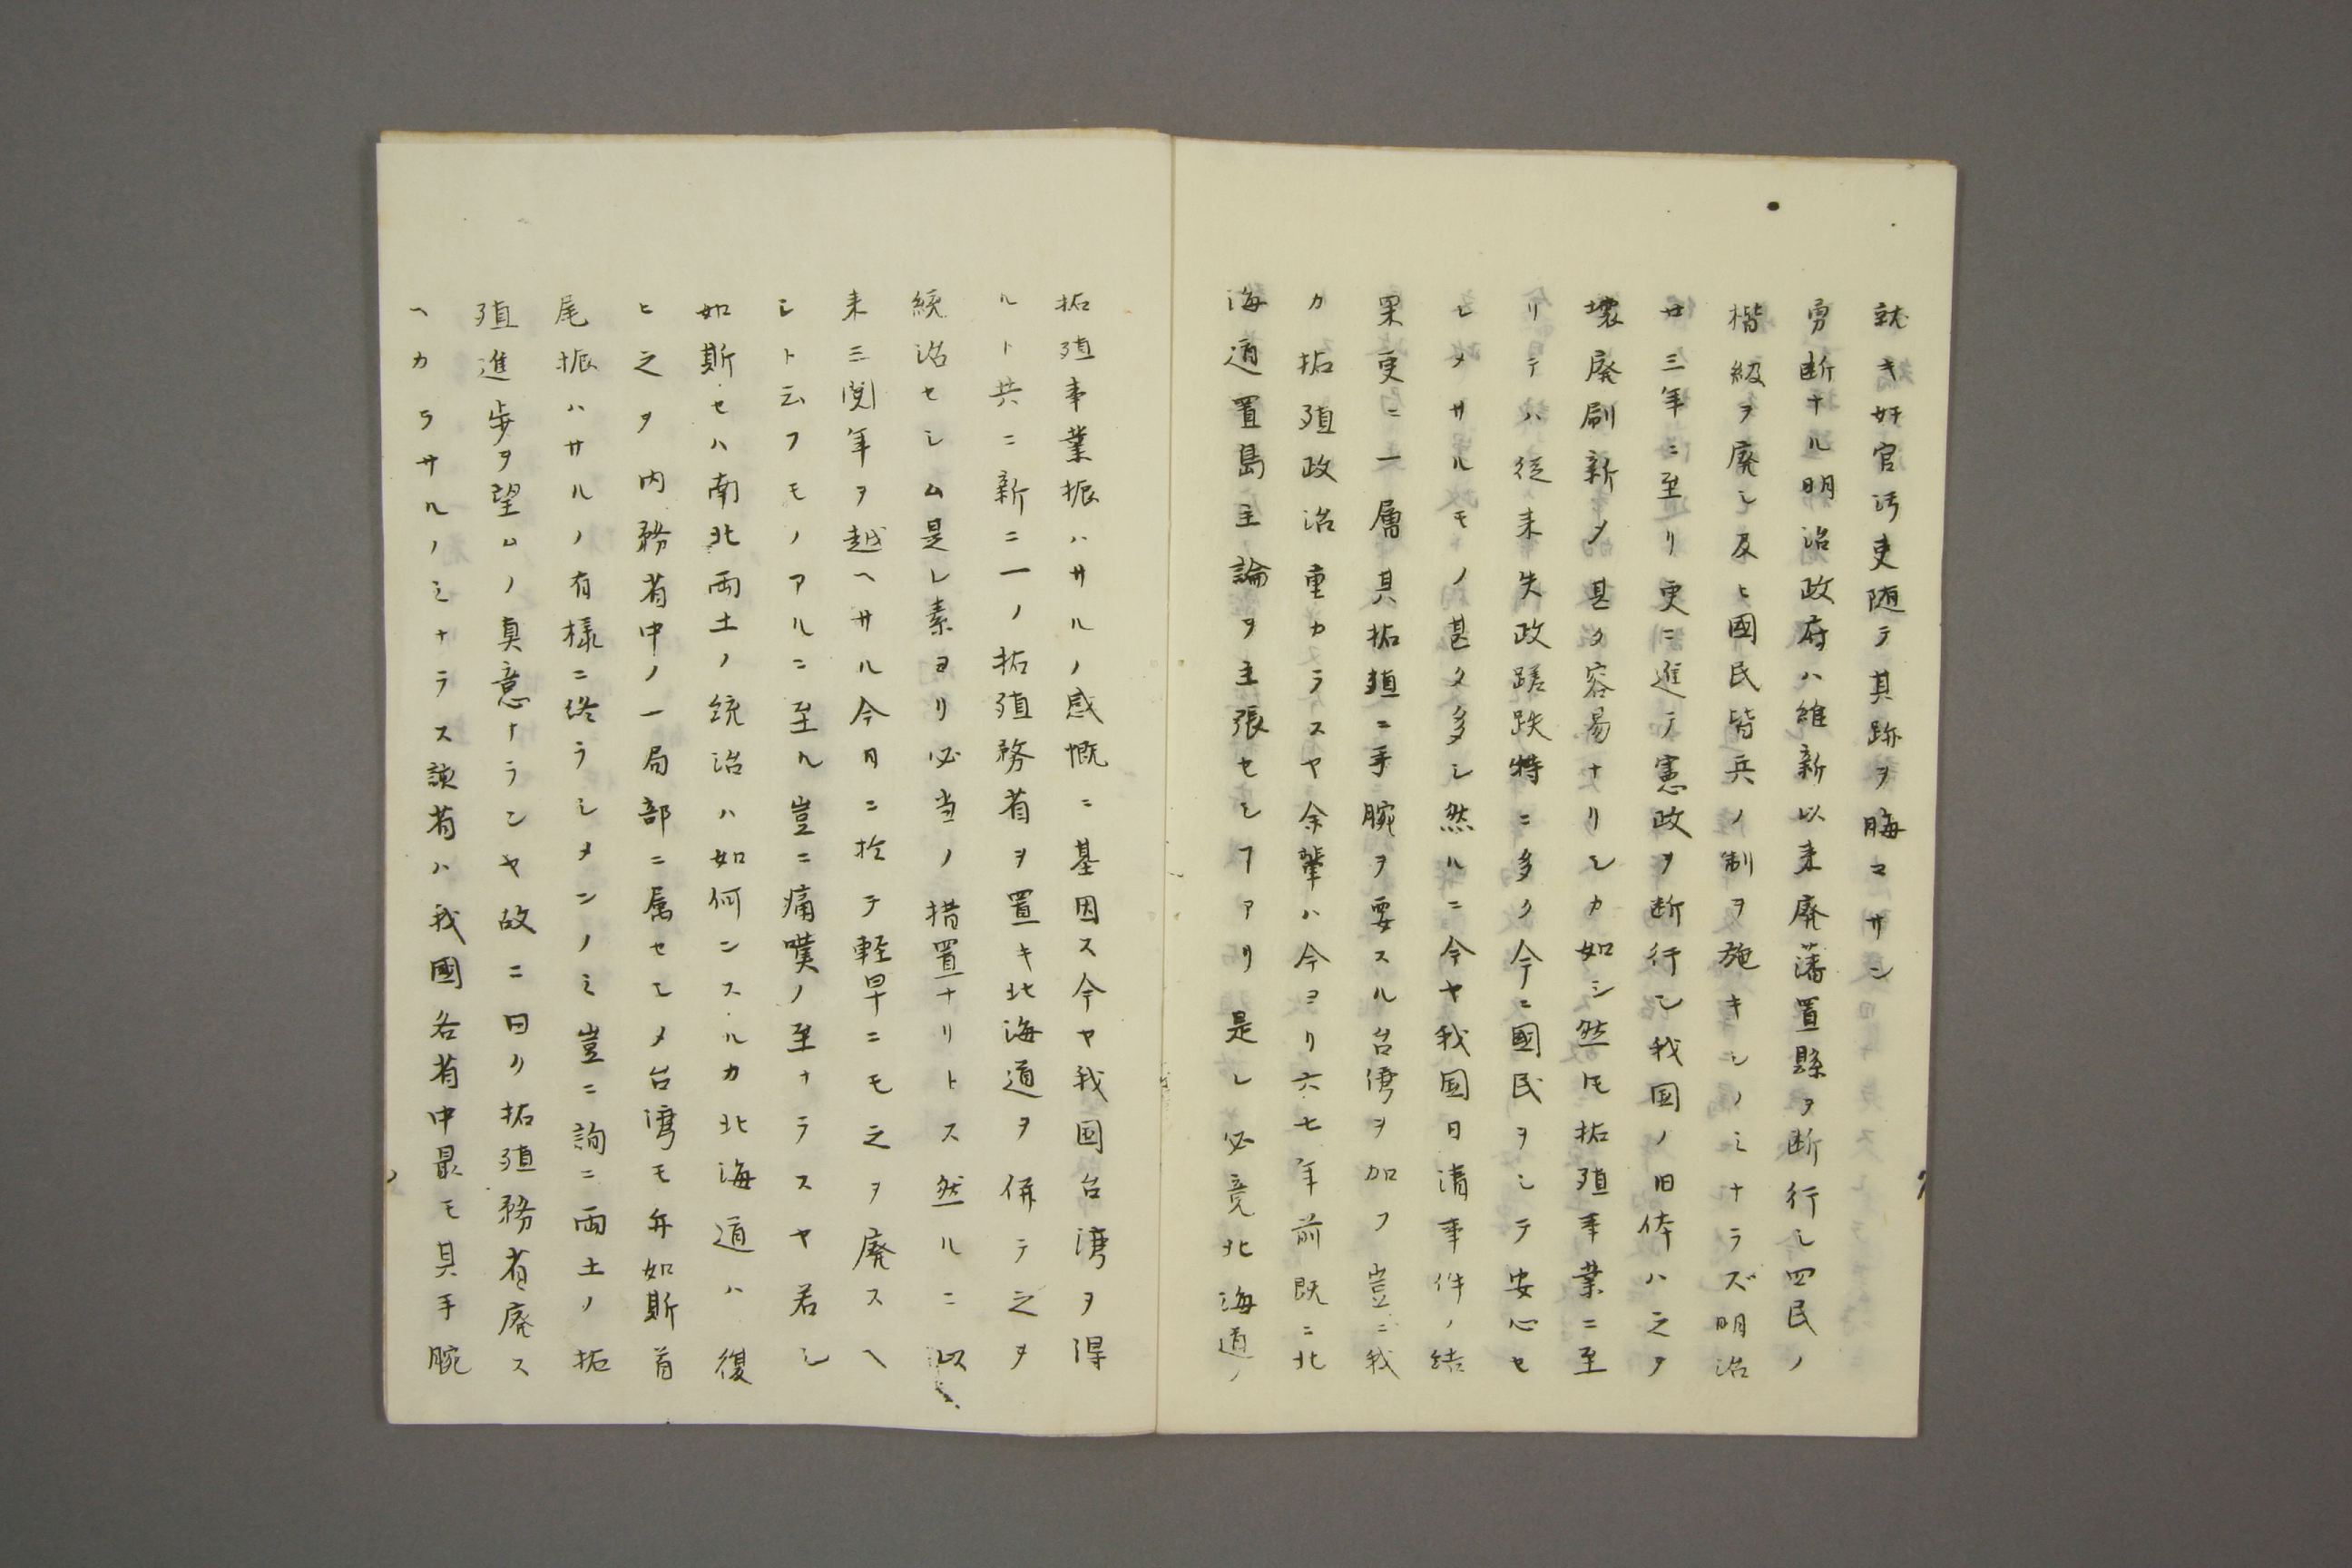 就キ奸官汚吏随テ其跡ヲ晦マサン
勇断ナル明治政府ハ維新以来廃藩置縣ヲ断行シ四民ノ
楷級ヲ廃シ及ヒ國民皆兵ノ制ヲ施キシノミナラズ明治
廿三年ニ至リ更ニ進テ憲政ヲ断行シ我国ノ旧体ハ之ヲ
壊廃刷新メ甚タ容易ナリシカ如シ然トモ拓殖事業ニ至
リテハ従来失政蹉跌特ニ多ク今ニ國民ヲシテ安心セ
シメサルモノ甚タ多シ然ルニ今ヤ我国日清事件ノ結
果更ニ一層其拓殖ニ手腕ヲ要スル台湾ヲ加フ豈ニ我
カ拓殖政治重カラスヤ余輩ハ今ヨリ六七年前既ニ北
海道置島主論ヲ主張セシヿアリ是レ必竟北海道ノ
拓殖事業振ハサルノ感慨ニ基因ス今ヤ我国台湾ヲ得
ルト共ニ新ニ一ノ拓殖務省ヲ置キ北海道ヲ併テ之ヲ
統治セシム是レ素ヨリ必当ノ措置ナリトス然ルニ以
来三閲年ヲ越ヘサル今日ニ於テ軽卒ニモ之ヲ廃スヘ
シト云フモノアルニ至ル豈ニ痛嘆ノ至ナラスヤ若シ
如斯セハ南北両土ノ統治ハ如何ンスルカ北海道ハ復
ヒ之ヲ内務省中ノ一局部ニ属セシメ台湾モ亦如斯首
尾振ハサルノ有様ニ終ラシメンノミ豈ニ詢ニ両土ノ拓
殖進歩ヲ望ムノ真意ナランヤ故ニ曰ク拓殖務省廃ス
ヘカラサルノミナラス該省ハ我國各省中最モ其手腕